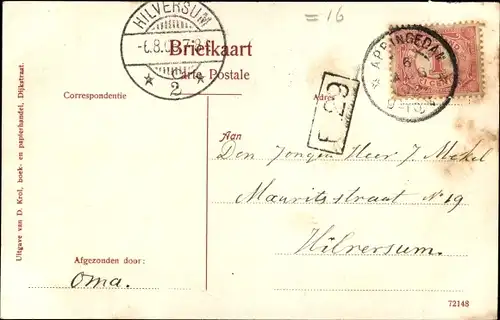 = 16
HILVERSUM
2
Briefkaart
Carte Postale
APPINGEDAM
Correspondentie
Adres
F 29
Aan
Den Jongen Heer J Mekel
Mauritsstraat No 19
Hilversum.
Afgezonden door:
Oma.
Uitgave van D. Krol, boek- en papierhandel, Dijkstraat.
72148